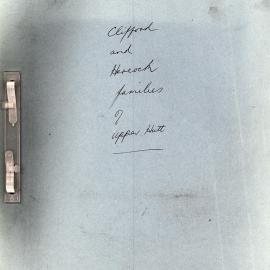 Clifford
and
Hancock
families
of
Upper Hutt